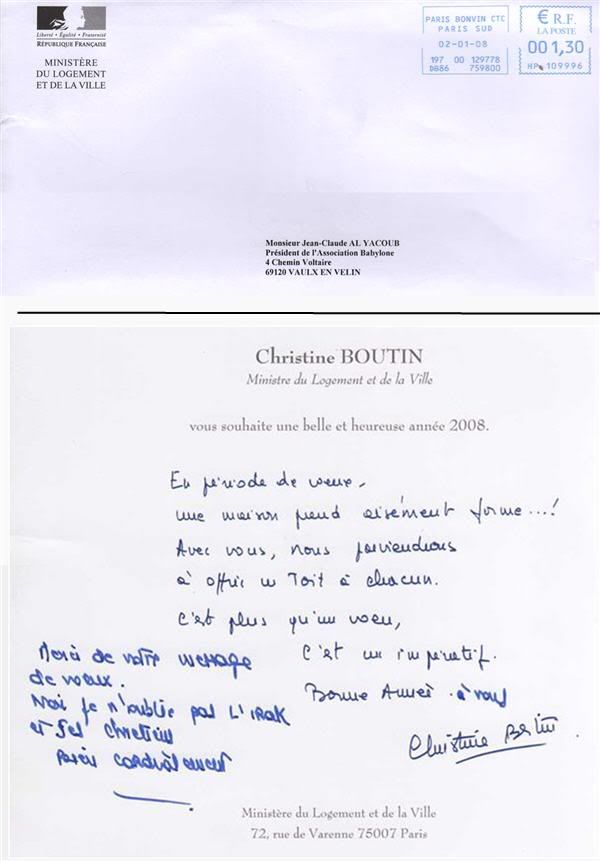 Liberté • Égalité • Fraternité
RÉPUBLIQUE FRANÇAISE
MINISTÈRE
DU LOGEMENT
ET DE LA VILLE
PARIS BONVIN CTC
PARIS SUD
02-01-08
197 00 129778
DB86 759800
€ R.F.
LA POSTE
001,30
HP 109996
Monsieur Jean-Claude AL YACOUB
Président de l'Association Babylone
4 Chemin Voltaire
69120 VAULX EN VELIN
Christine BOUTIN
Ministre du Logement et de la Ville
vous souhaite une belle et heureuse année 2008.
En période de voeux,
une maison prend aisément forme...!
Avec vous, nous parviendrons
à offrir un Toit à chacun.
C'est plus qu'un voeu,
C'est un impératif.
Bonne Année à vous
Christine Boutin
Merci de votre message
de voeux.
Moi je n'oublie pas L'IRAK
et ses chrétiens
cordialement
Ministère du Logement et de la Ville
72, rue de Varenne 75007 Paris